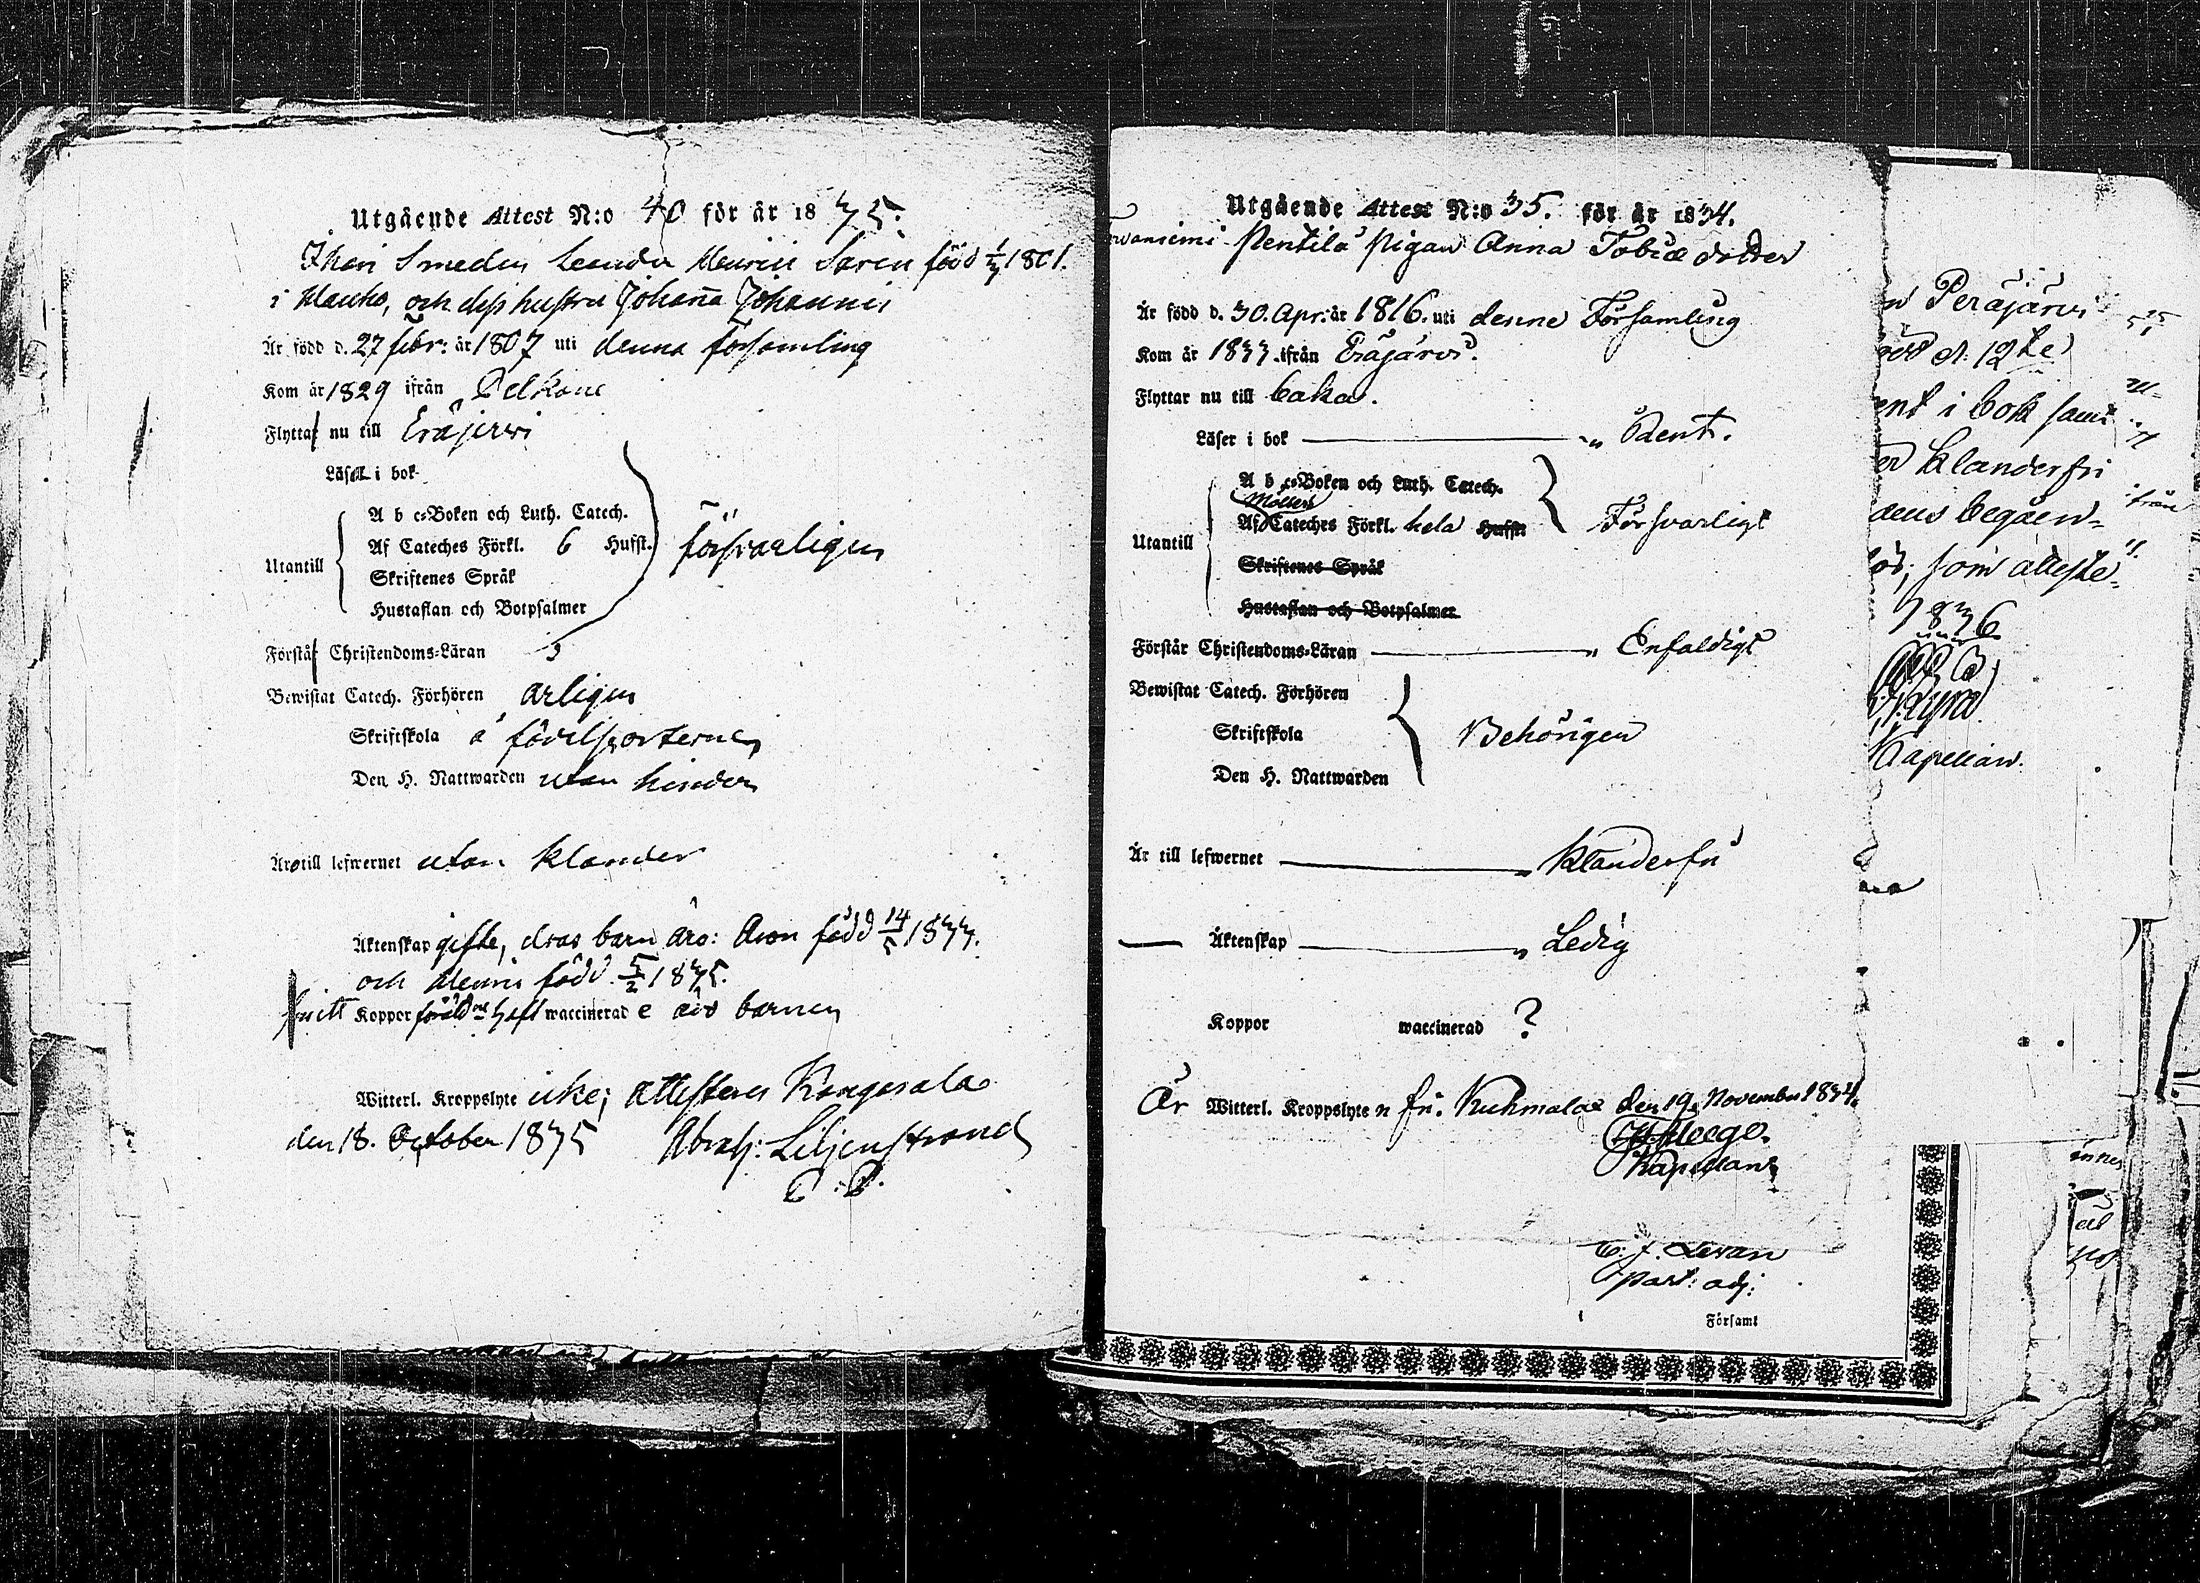 Utgående Attest N:o 40 för år 1835.
Ihari Smeden Leander Henric Saren född 1/7 1801.
i Mauho, och dess hustru Johanna Johannis
Är född d. 27 febr: år 1807 uti denna församling
Kom år 1829 ifrån Pelkäne
Flytta nu till Eräjerwi
Läsa i bok
Utantill
A b c-Boken och Luth. Catech.
Af Cateches Förkl. 6 Hufst.
försvarligen
Skriftenes Språk
Hustaflan och Botpsalmer
Förstå Christendoms-Läran
Bewistat Catech. Förhören årligen
Skriftskola å födelseorterne,
Den H. Nattwarden utan hinder,
Äro till lefwernet utan klander
Äktenskap gifte, deras barn äro: född 14/5 1833.
och Henric född 5/2 1835.
Koppor föräld haft waccinerade äro barnen
Witterl. Kroppslyte icke; attesteras Kangasala
den 18. October 1835 Abrah: Liljenstrand
Utgående Attest N:o 35. för år 1834.
Pentilä Pigan Anna Tobiæ dotter
Är född d. 30. Apr: år 1816. uti denne Församling
Kom år 1833. ifrån Eräjärvi.
Flyttar nu till baka.
Läser i bok " Rent.
Utantill
A b c-Boken och Luth. Catech.
Möllers
Af Cateches Förkl. hela Hufst.
Försvarligt
Skriftenes Språk
Hustaflan och Botpsalmer
Förstår Christendoms-Läran " Enfaldigt
Bewistat Catech. Förhören
Skriftskola
Behörigen
Den H. Nattwarden
Är till lefwernet " Klanderfri
Äktenskap " Ledig
Koppor waccinerad ?
Är Witterl. Kroppslyte n fri. Kuhmalax den 19. November 1834.
Heege.
Kapellan
part: adj:
Församl
Peräjärvi
d. 12te
i bok samt
klanderfri
begåen=
som atteste=
1836
Capellan.
ifrån